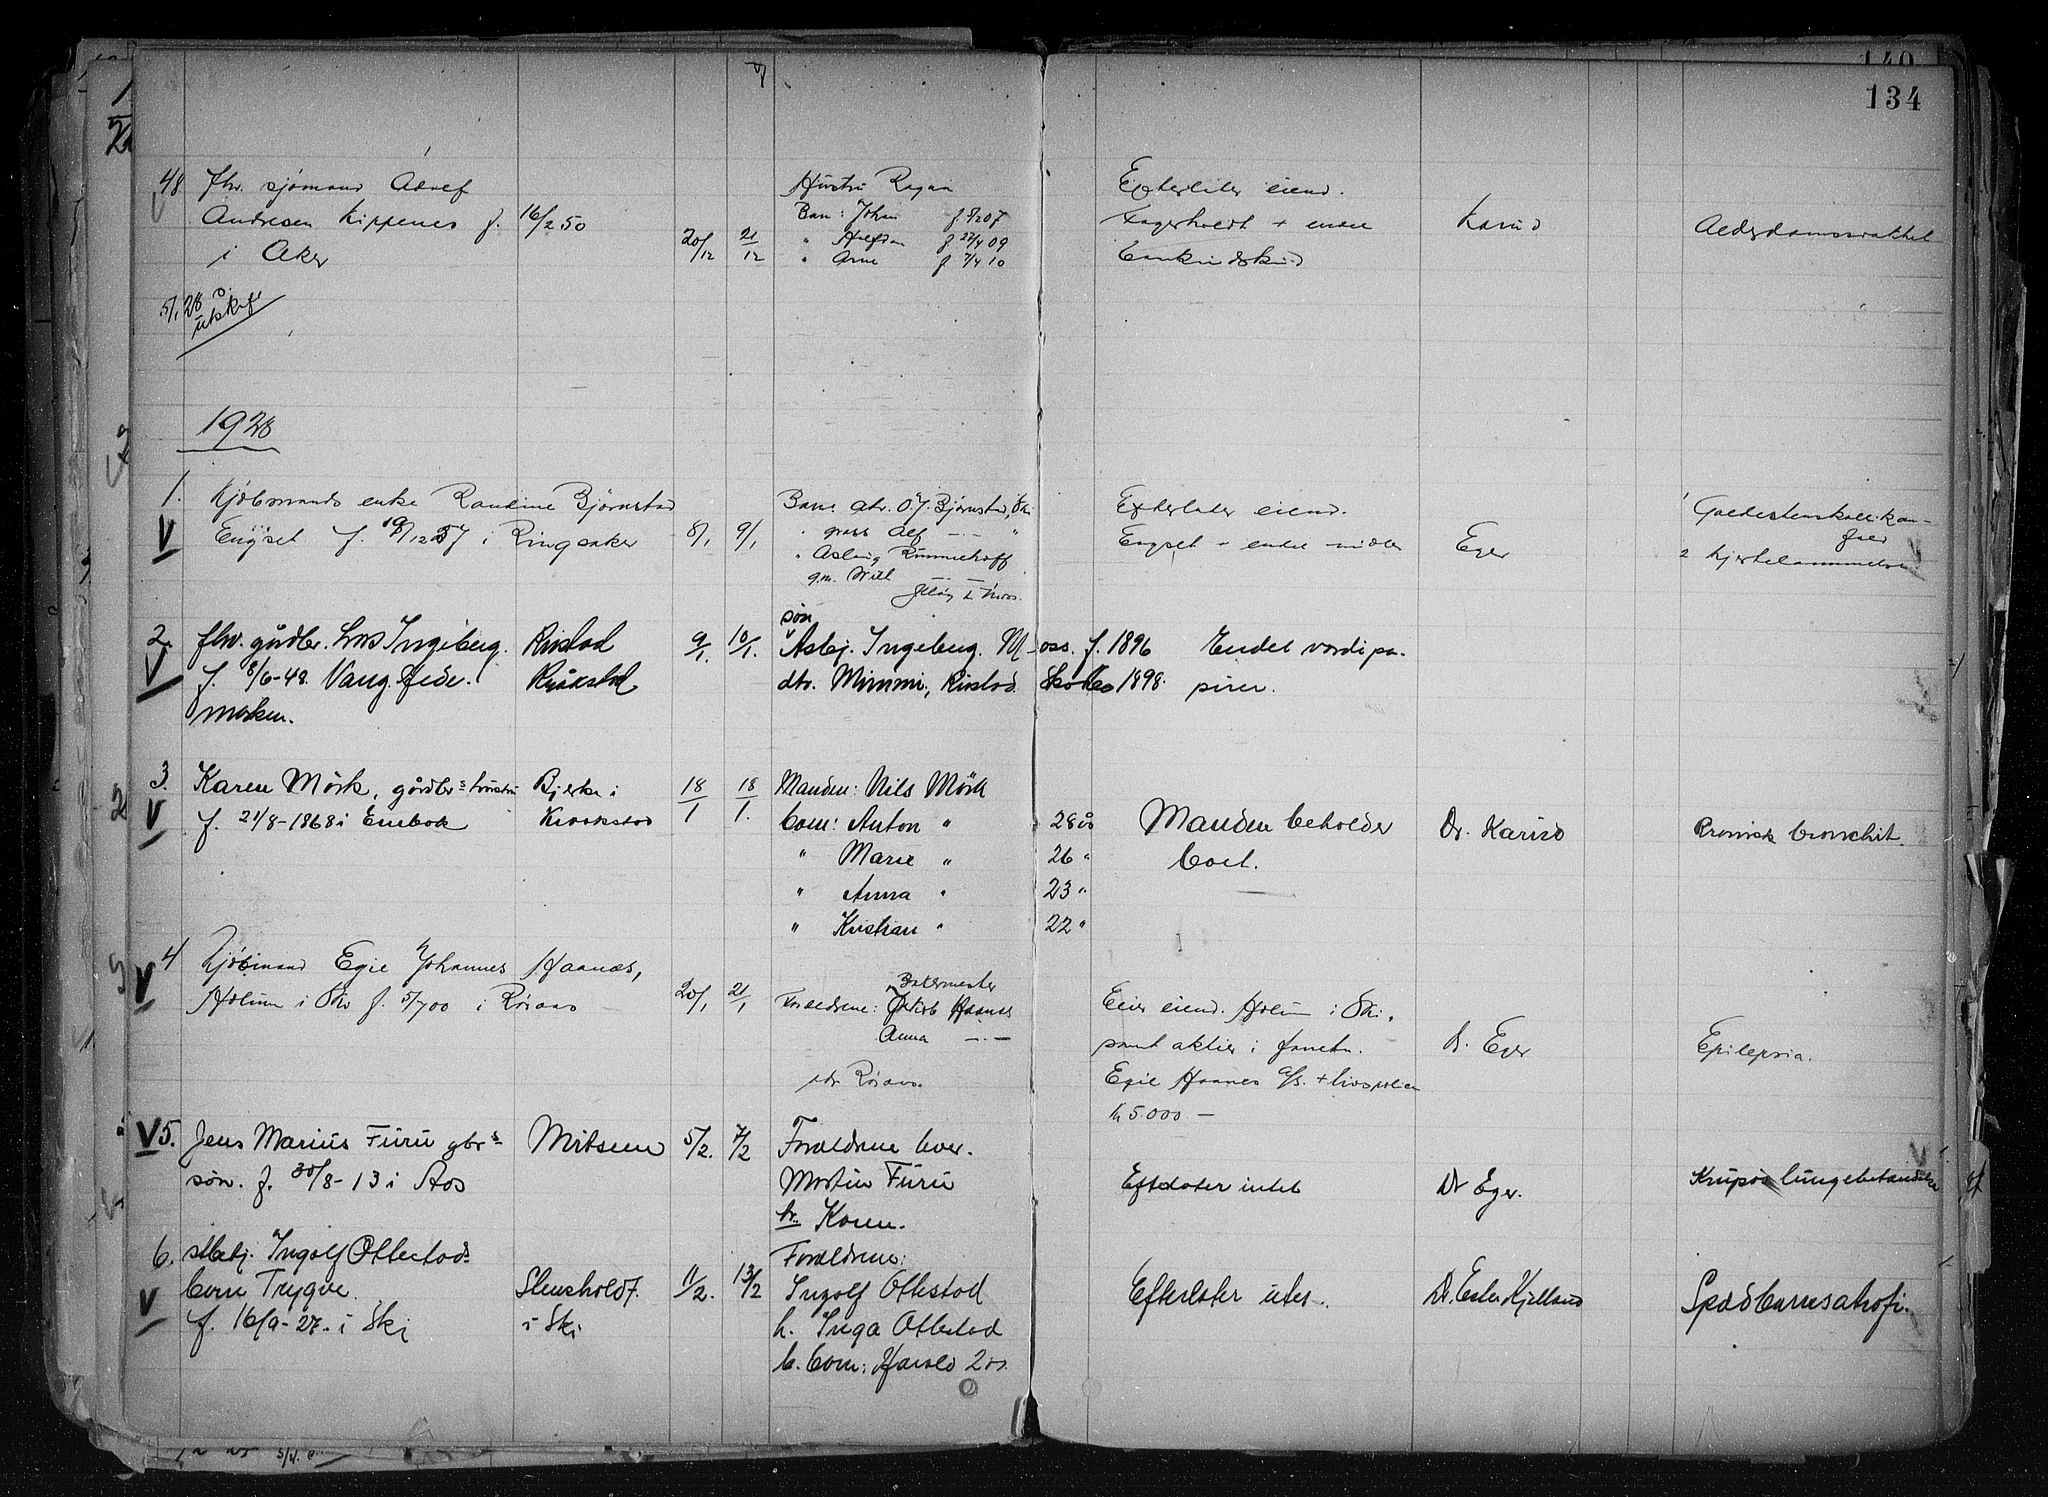 140
134
48 fhv. sjømand
Andresen Kippenes f. 16/2 50
i Aker
20/12 21/12
Hustru Ragna
Barn: Johan f 07
" Halfdan f 27/4 09
" Arne f 7/4 10
Efterlater eiend.
Fagerholdt + endel
Karud
Alderdomssvakhet
5/1 28
utskr.
1928
1. Kjøbmands enke Randine Bjørnstad
Engset f. 19/12 57 i Ringsaker
8/1 9/1
Barn: O. J. Bjørnstad, Ski
Alf —"— "
" Aslaug Rummelhoff
g.m. Will —"—
Jeløy Moss.
Efterlater eiend.
Engset + endel midler
Eger
1 Galdestenskolik
2 hjertelammelse
2. fhv. gårdbr. Lars Ingeberg.
f. 8/6-48. Vang. Hede-
marken.
Rustad
Kråkstad
9/1. 10/1.
søn
Asbj. Ingeberg. Moss. f. 1896
dtr. Mimmi, Rustad 1898.
Endel værdipa-
pirer.
3. Karen Mörk, gårdbrs hustru
f. 21/8-1868 i Enebak
Bjerke i
Kraakstad
18/1 18/1.
Manden: Nils Mörk
barn: Anton " 28 år
" Marie " 26 "
" Anna " 23 "
" Kristian " 22 "
Manden beholder
boet.
Dr. Karud
Kronisk bronchit.
4 Kjøbmand Egil Johannes Haanæs,
Holum i Ski f. 5/7 00 i Røraas
20/1 21/1
Bakermester
Forældrene: Jakob Haanæs
Anna —"—
Røraas.
Eier eiend. Holum i Ski,
samt aktier i
Egil Haanes A/S. + livspolice
kr 5.000.—
Dr. Eger
Epilepsia.
5. Jens Marius Furu gbrs
søn. f. 30/8-13 i Aas
5/2. 7/2
Forældrene lever.
Martin Furu
h. Karen.
Efterlater intet
Dr Eger.
Krupøs lungebetændelse
6. Ingolf Ottestads
barn Trygve.
f. 16/9-27. i Ski
Slensholdt.
i Ski
11/2. 13/2
Forældrene:
Ingolf Ottestad
h. Inga Ottestad
b. barn: Harald 2 år.
Efterlater intet.
Dr. Ester Kjelland
Spædbarnsatrofi.